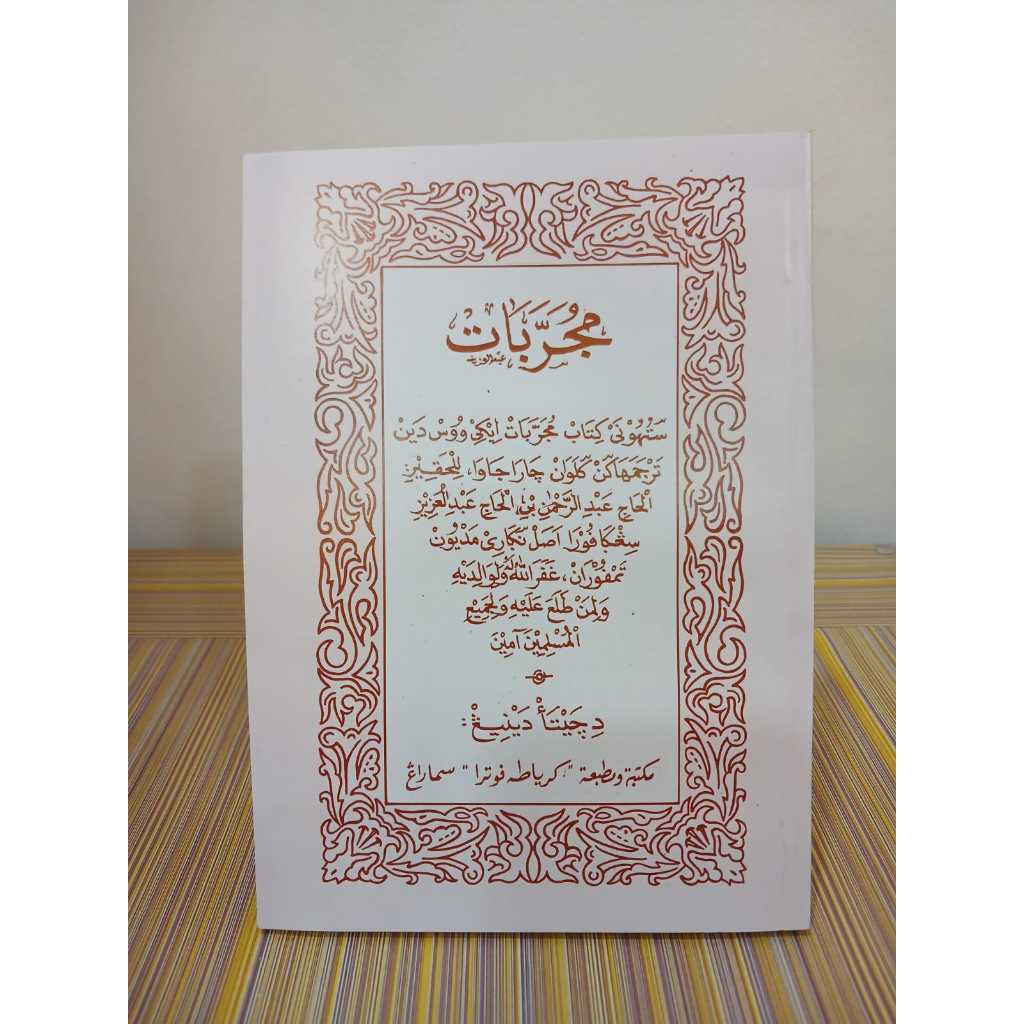 مُجَرَّبَات
سَتُهُوْنَيْ كِتَابْ مُجَرَّبَاتْ اِيْكِيْ وُوْسْ دَيْنْ
تَرْجَمَهَاكَنْ كَلَوَانْ چَارَا جَاوَا، لِلْحَقِيْرِ
الْحَاجْ عَبْدِ الرَّحْمٰنِ بْنِ الْحَاجْ عَبْدِ الْعَزِيْزِ
سِڠْكَافُوْرَا اَصَلْ نَكَارِيْ مَدْيُوْنْ
تَمْفُوْرَانْ، غَفَرَ اللهُ لَهُ وَلِوَالِدَيْهِ
وَلِمَنْ طَلَعَ عَلَيْهِ وَلِجَمِيْعِ
الْمُسْلِمِيْنَ آمِيْنَ
دِ چَيْتَأْ دَيْنِيْڠْ:
مكتبة ومطبعة "كرياطه فوترا" سماراڠ